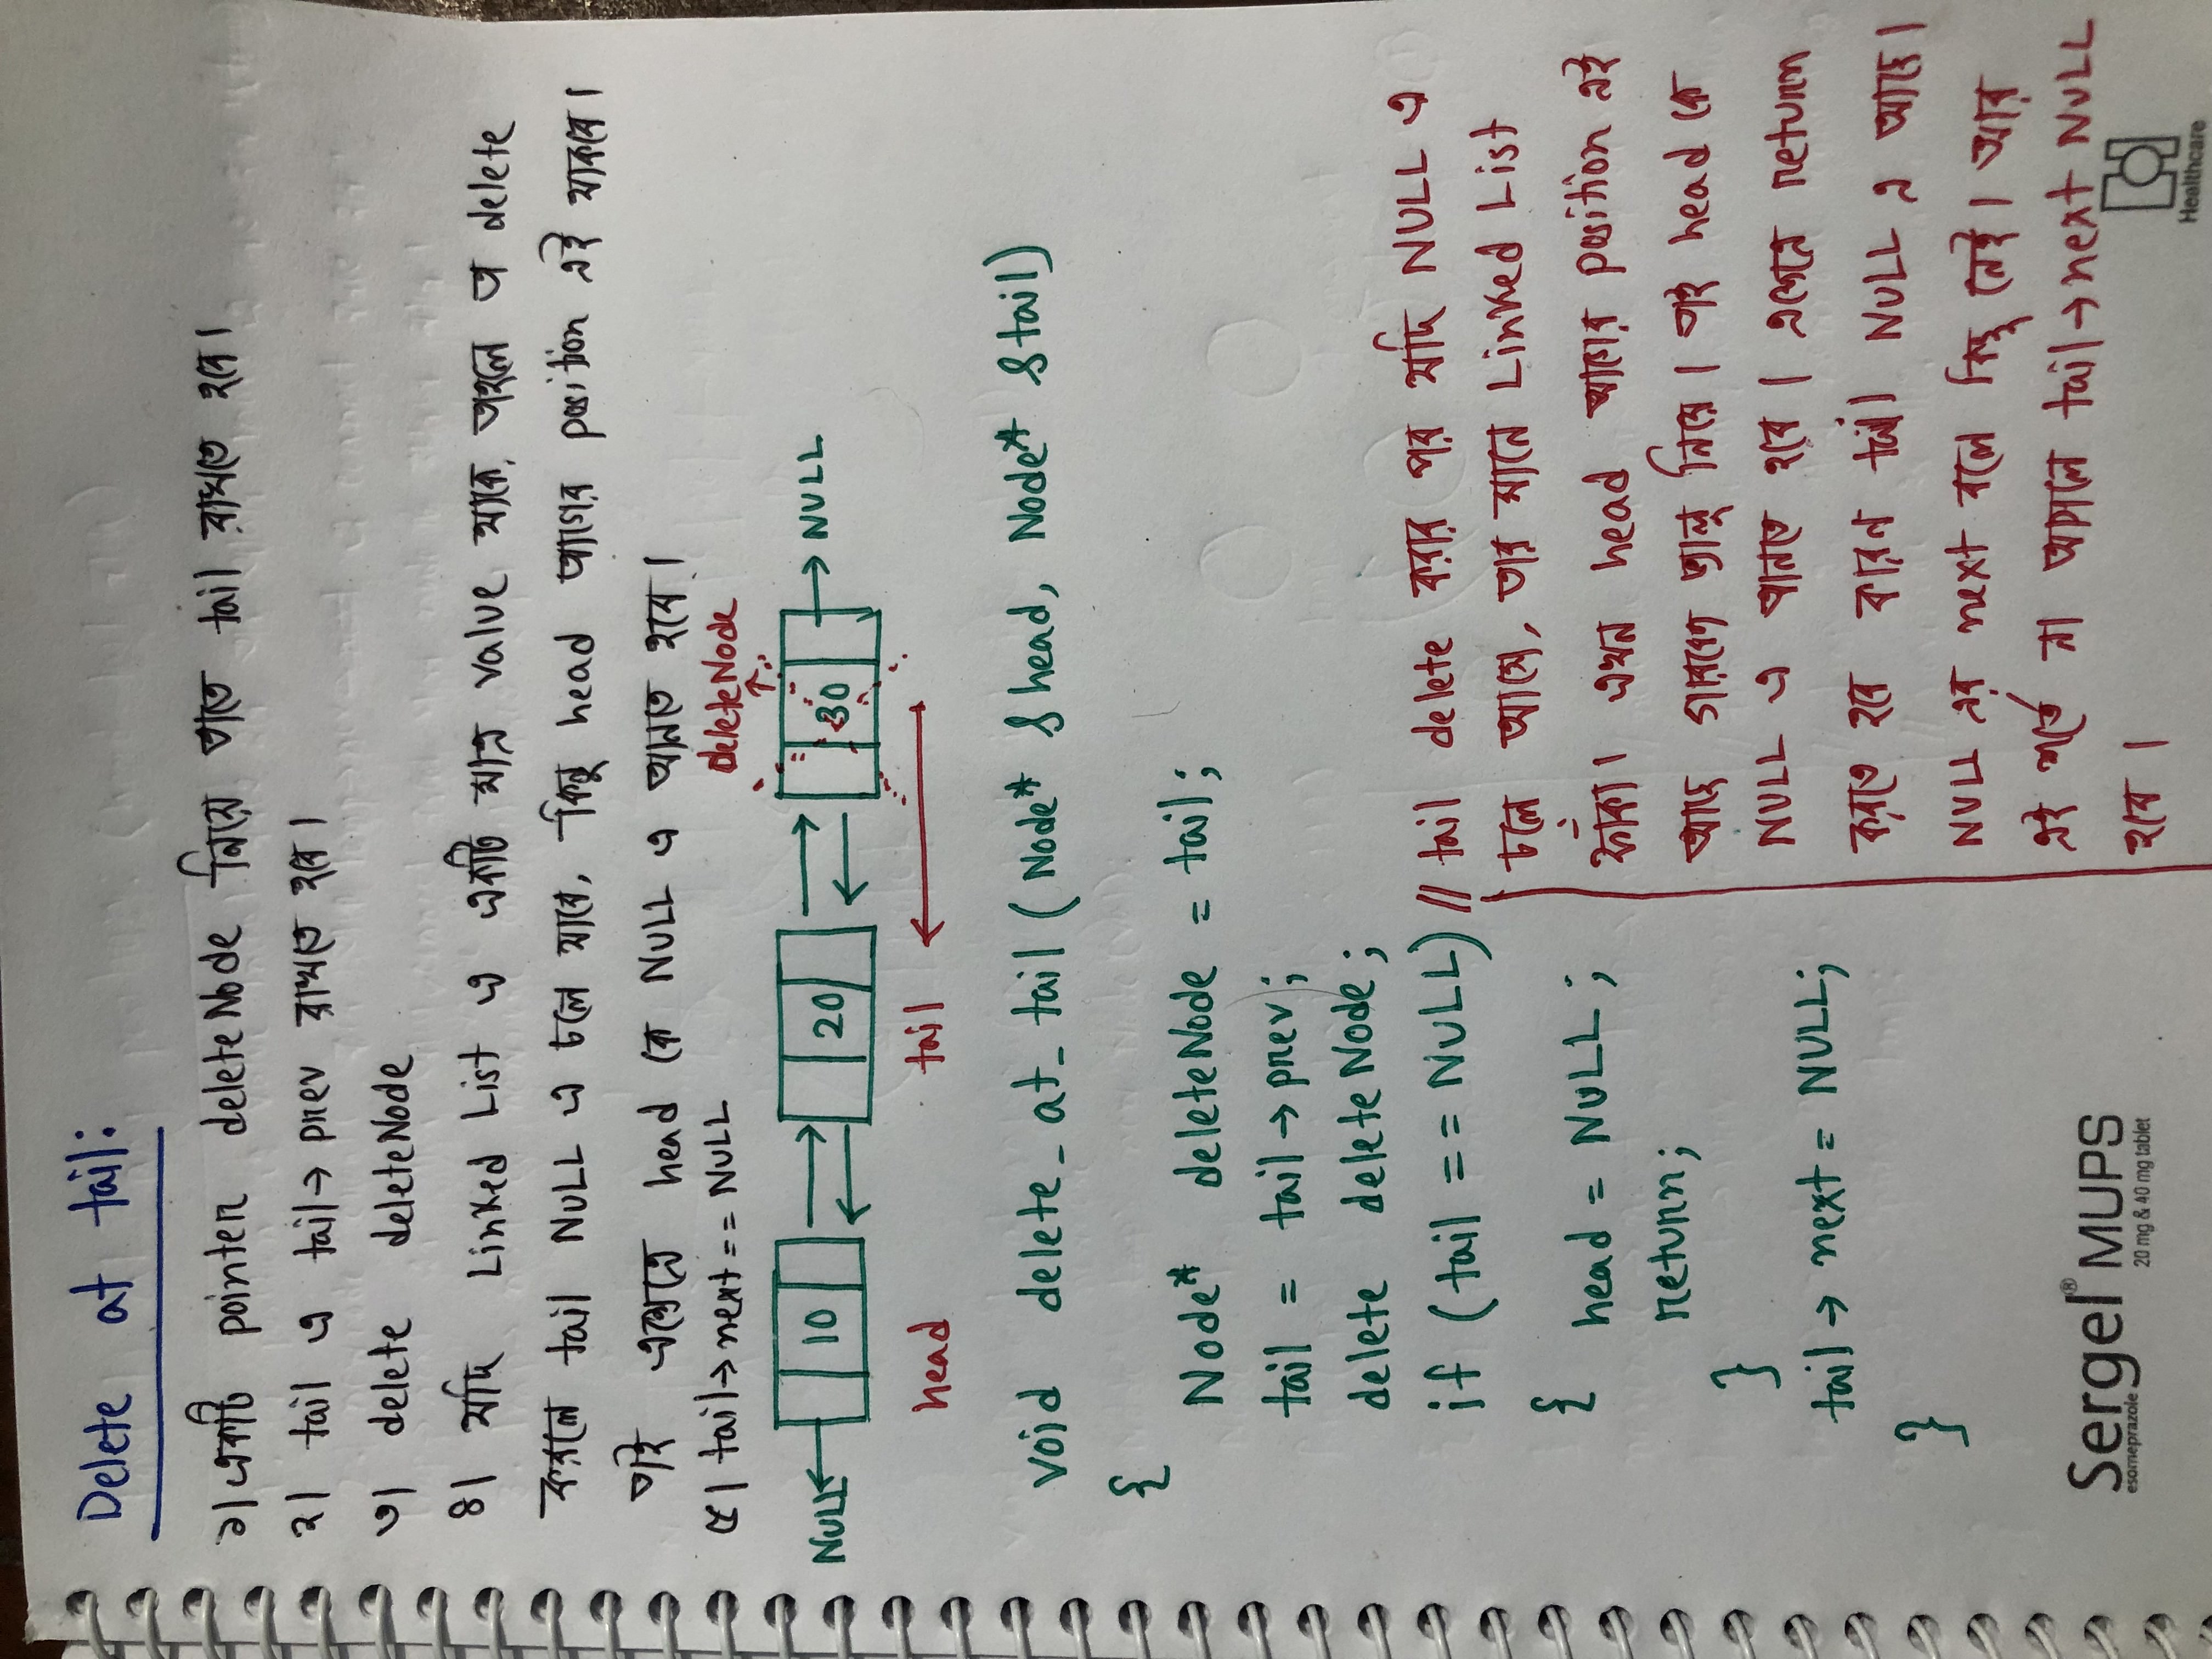 Delete at tail:
১। একটি pointer deleteNode নিয়ে তাতে tail রাখতে হবে।
২। tail এ tail→prev রাখতে হবে।
৩। delete deleteNode
৪। যদি Linked List এ একটি মাত্র value থাকে, তাহলে তা delete
করলে tail NULL এ চলে যাবে, কিন্তু head আগের position এই থাকবে।
তাই এক্ষেত্রে head কে NULL এ আনতে হবে।
৫। tail→next == NULL
deleteNode
NULL 10 20 30 NULL
head tail
void delete_at_tail (Node* &head, Node* &tail)
{
Node* deleteNode = tail;
tail = tail→prev;
delete deleteNode;
if (tail == NULL) // tail delete করার পর যদি NULL এ
চলে আসে, তার মানে Linked List
{ head = NULL;
ফাঁকা। এখন head আগের position এই
return;
আছে গারবেজ ভ্যালু নিয়ে। তাই head কে
}
NULL এ আনতে হবে। এক্ষেত্রে return
tail→next = NULL;
করতে হবে কারন tail NULL এ আছে।
}
NULL এর next বলে কিছু নেই। আর
এই শর্তে না আসলে tail→next NULL
হবে।
Sergel® MUPS
esomeprazole
20 mg & 40 mg tablet
Healthcare